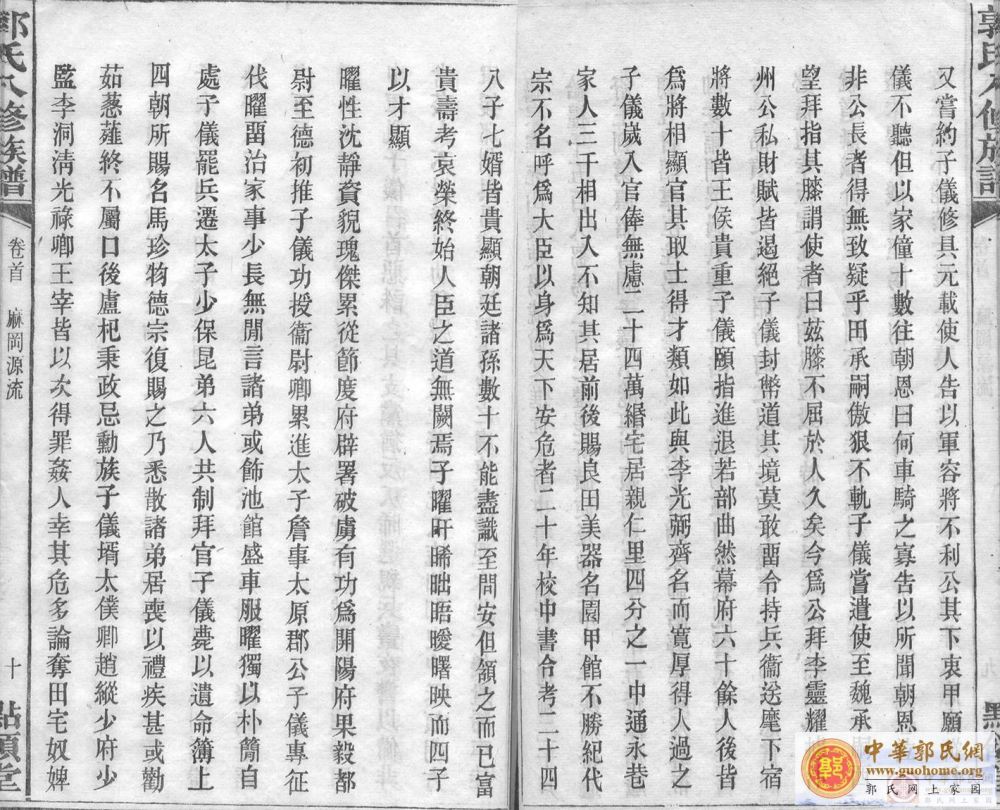 郭氏八修族譜
又嘗約子儀修具元載使人告以軍容將不利公其下衷甲願
儀不聽但以家僮十數往朝恩曰何車騎之寡告以所聞朝恩
非公長者得無致疑乎田承嗣傲狠不軌子儀嘗遣使至魏承
望拜指其膝謂使者曰玆膝不屈於人久矣今爲公拜李靈耀
州公私財賦皆遏絕子儀封幣道其境莫敢畱令持兵衞送麾下宿
將數十皆王侯貴重子儀頤指進退若部曲然幕府六十餘人後皆
爲將相顯官其取士得才類如此與李光弼齊名而寬厚得人過之
子儀歲入官俸無慮二十四萬緡宅居親仁里四分之一中通永巷
家人三千相出入不知其居前後賜良田美器名園甲館不勝紀代
宗不名呼爲大臣以身爲天下安危者二十年校中書令考二十四
八子七婿皆貴顯朝廷諸孫數十不能盡識至問安但頷之而已富
貴壽考哀榮終始人臣之道無闕焉子曜旰晞昢晤曖曙映而四子
以才顯
曜性沈靜資貌瑰傑累從節度府辟署破虜有功爲開陽府果毅都
尉至德初推子儀功授衞尉卿累進太子詹事太原郡公子儀專征
伐曜畱治家事少長無閒言諸弟或飾池館盛車服曜獨以朴簡自
處子儀罷兵遷太子少保昆弟六人共制拜官子儀薨以遺命簿上
四朝所賜名馬珍物德宗復賜之乃悉散諸弟居喪以禮疾甚或勸
茹葱薤終不屬口後盧杞秉政忌勳族子儀壻太僕卿趙縱少府少
監李洞淸光祿卿王宰皆以次得罪姦人幸其危多論奪田宅奴婢
郭氏八修族譜
卷首 麻岡源流
十
點頷堂
中華郭氏網
www.guohome.org
郭氏网上家园